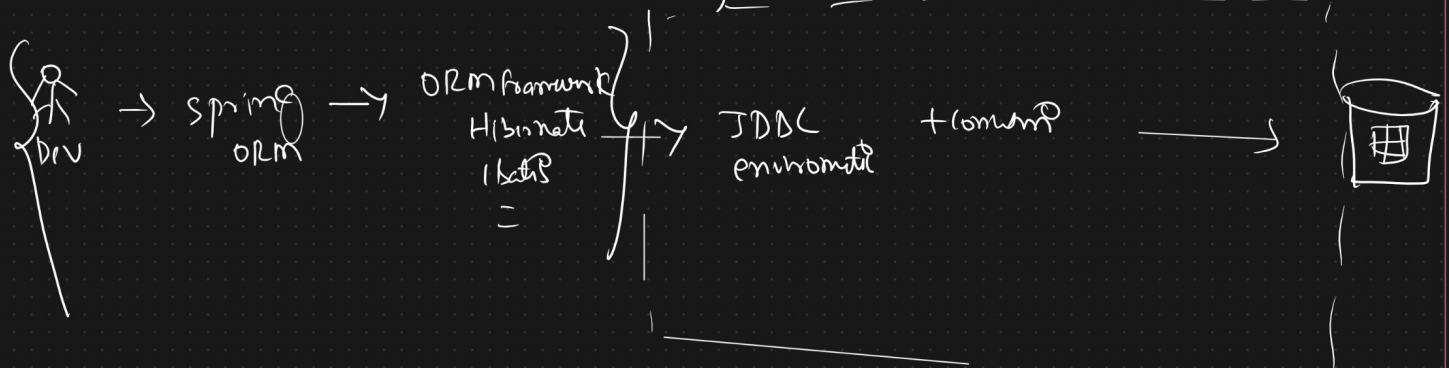 DEV
→ spring
ORM
→ ORM framework
Hibernate
iBatis
=
→ JDBC
environment